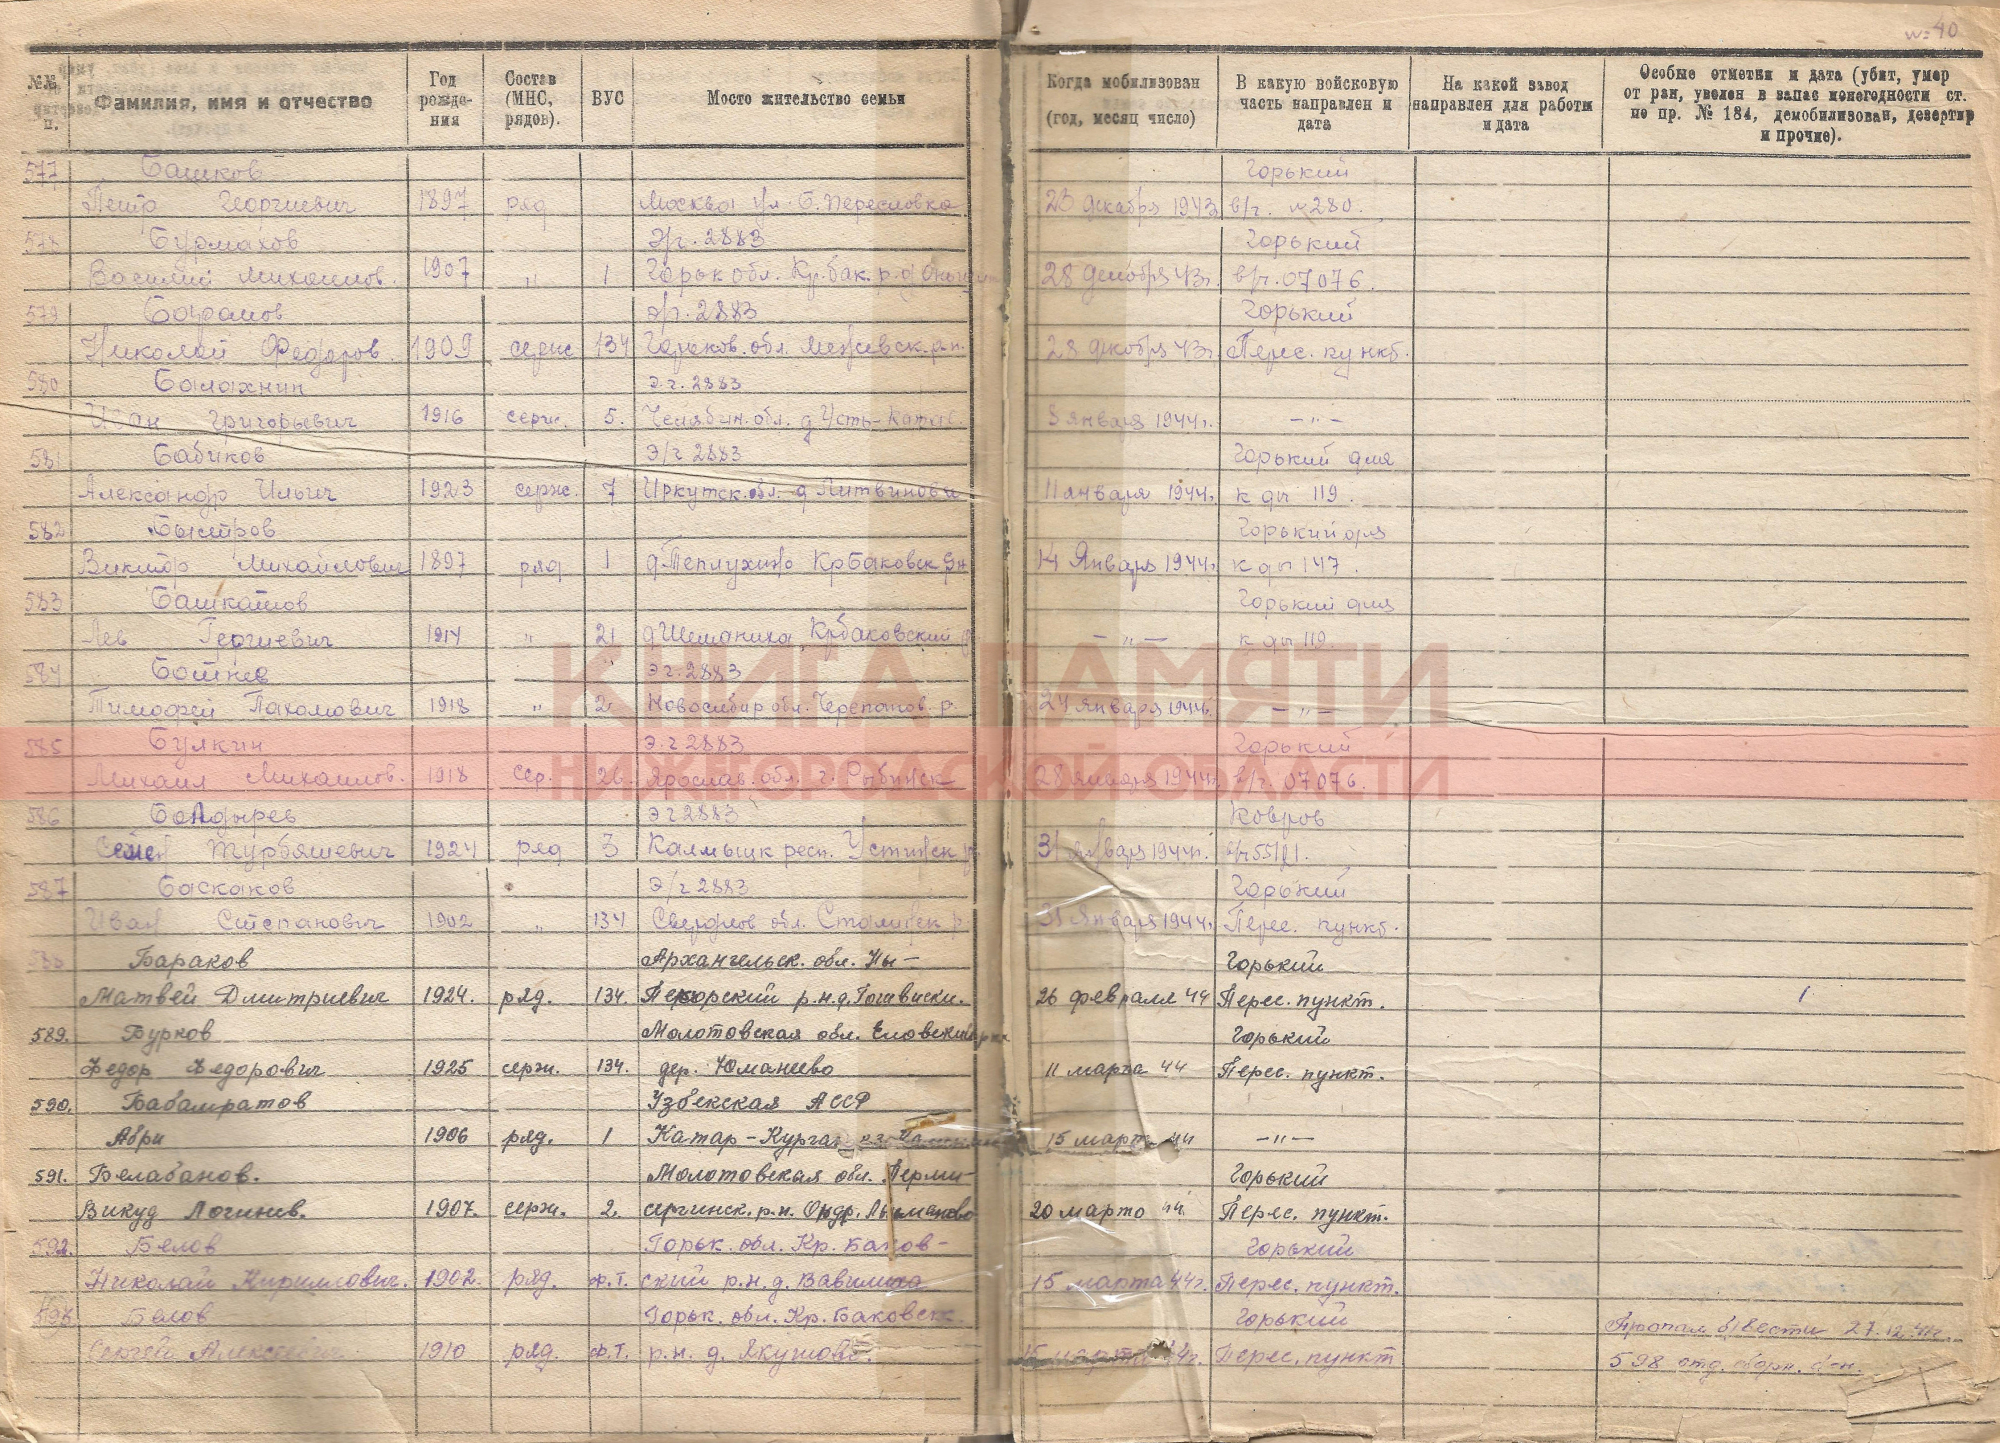 № 40
№№ п. Фамилия, имя и отчество Год рожде- ния Состав (МНС, рядов). ВУС Мосто жительство семьи Когда мобилизован (год, месяц число) В какую войсковую часть направлен и дата На какой завод направлен для работы и дата Особые отметки и дата (убит, умер от ран, уволен в запас по негодности ст. по пр. № 184, демобилизован, дезертир и прочие).
577 Башков Горький
Петр Георгиевич 1897 ряд Москва ул. Б. 23 декабря 1943 в/г. № 280.
578 Бурмахов Э/г. 2883 Горький
Василий Михайлов. 1907 " 1 Горьк обл. Кр.бак. р. 28 декабря 43г. в/ч. 07076.
579 э/г. 2883 Горький
Николай Федоров. 1909 серж 134 Горьков. обл. 28 декабря 43г. Перес. пункт.
580 Балахнин э.г. 2883
Иван Григорьевич 1916 серж. 5. Челябин. обл. д Усть-Катав 8 января 1944г. — " —
581 Бабиков Э/г 2883 Горький для
Александр Ильич 1923 серж. 7 Иркутск. обл. д Литвинова 11 января 1944г. к ды 119.
582 Быстров Горький для
Виктор Михайлович 1897 ряд 1 д. Теплухино Крбаковск рн 14 Января 1944г. к ды 147.
583 Башкатов Горький для
Лев Гергиевич 1914 " 21 д Шеманиха Крбаковский р — " — к ды 119.
584 " э г. 2883
Тимофей Пахомович 1918 " 2 Новосибир обл. Черепанов. р. 27 января 1944г. — " —
585 Булкин э. г 2883 Горький
Михаил Михайлов. 1918 сер. 26. Ярослав. обл. г. Рыбинск 28 января 1944г. в/ч. 07076.
КНИГА ПАМЯТИ
НИЖЕГОРОДСКОЙ ОБЛАСТИ
586 Болдырев э г 2883 Ковров
Семен 1924 ряд 3 Калмыцк респ. Устинск р. 31 января 1944г.
587 Баскаков Э/г 2883 Горький
Иван Степанович 1902 " 134 Свердлов обл. Сталинск р. 31 Января 1944г. Перес. пункт.
588 Бараков Архангельск. обл. Ны — Горький
Матвей Дмитриевич 1924. ряд. 134. р.н.д. 26 февраля 44 Перес. пункт.
589. Бурков Молотовская обл. Еловский Горький
Федор Федорович 1925 серж. 134. дер. Юманеево 11 марта 44 Перес. пункт.
590. Бабамратов Узбекская АССР
Абри 1906 ряд. 1 Катар-Курган 15 март 44 —"—
591. Белабанов. Молотовская обл. Горький
Викуд Логинов. 1907. серж. 2. сергинск. р.н. 20 марто 44 Перес. пункт.
592. Белов Горьк. обл. Кр. Баков- Горький
Николай Кириллович. 1902. ряд. ф.т. ский р.н. д. Вавилиха 15 марта 44г. Перес. пункт.
593 Белов Горьк. обл. Кр. Баковск. Горький Пропал б/вести 27.12.44г.
Сергей Алексеевич 1910 ряд. ф.т. р.н. д. Якушово. 15 марта 44г. Перес. пункт 598 отд.